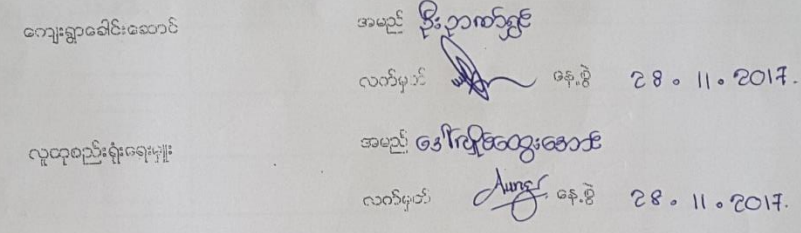 ကျေးရွာခေါင်းဆောင် အမည် ဦးဉာဏ်ရွှင်
လက်မှတ် နေ့စွဲ 28.11.2017.
လူထုစည်းရုံးရေးမှူး အမည် ဒေါ်
လက်မှတ် Aung နေ့စွဲ 28.11.2017.